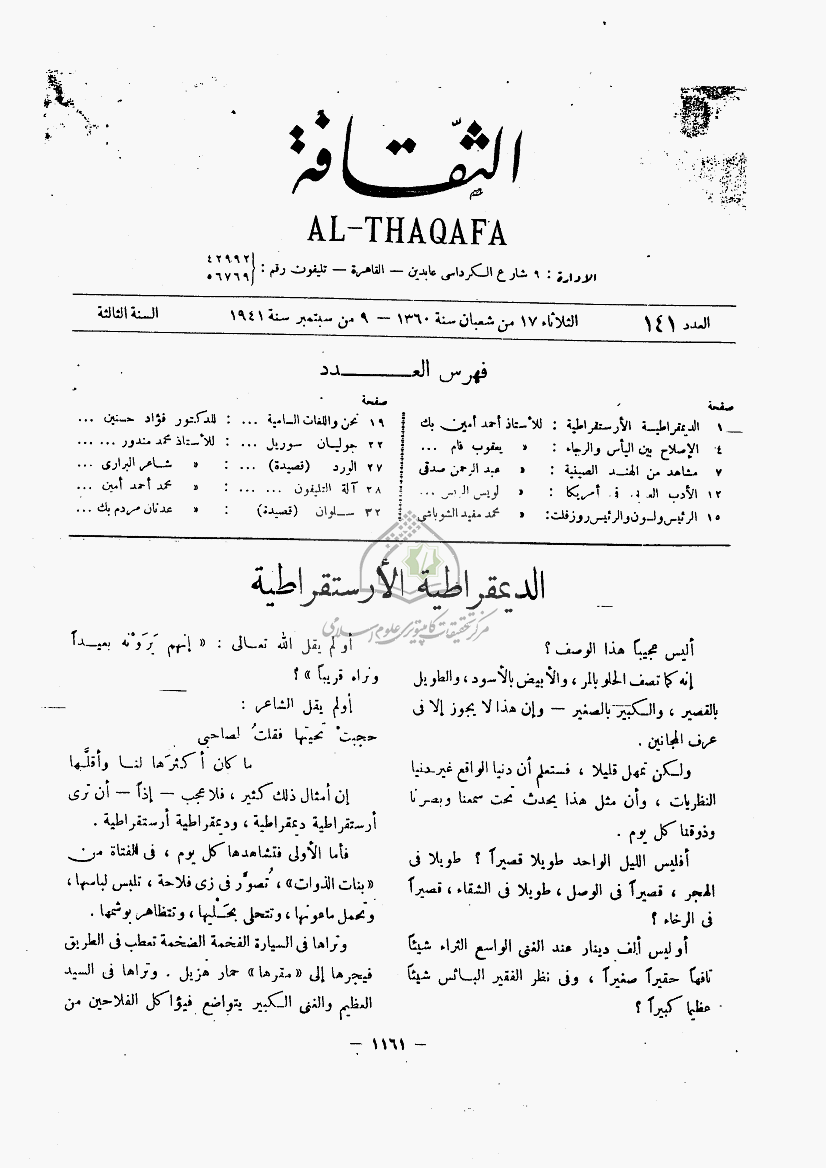 الثقافة
AL-THAQAFA
الادارة : ٩ شارع الكرداسى عابدين — القاهرة — تليفون رقم : ٤٢٩٩٢
٥٦٧٦٩
العدد ١٤١
الثلاثاء ١٧ من شعبان سنة ١٣٦٠ — ٩ من سبتمبر سنة ١٩٤١
السنة الثالثة
فهرس العـــــدد
صفحة
١ الديمقراطية الأرستقراطية : للأستاذ أحمد أمين بك
٤ الإصلاح بين اليأس والرجاء : « يعقوب فام ...
٧ مشاهد من الهند الصينية : « عبد الرحمن صدقى
١٢ الأدب العربى فى أمريكا : « لويس ...
١٥ الرئيس ولسون والرئيس روزفلت : « محمد مفيد الشوباشى
صفحة
١٩ نحن واللغات السامية ... : للدكتور فؤاد حسنين ...
٢٢ جوليان سوريل ... : للأستاذ محمد مندور ... ...
٢٧ الورد (قصيدة) ... : « شاعر البرارى ...
٢٨ آلة التليفون ... ... : « محمد أحمد أمين ...
٣٢ سلوان (قصيدة) : « عدنان مردم بك ...
الديمقراطية الأرستقراطية
مركز تحقيقات كامپيوترى علوم اسلامى
أليس عجيباً هذا الوصف ؟
إنه كما تصف الحلو بالمر ، والأبيض بالأسود ، والطويل
بالقصير ، والكبير بالصغير — وإن هذا لا يجوز إلا فى
عرف المجانين .
ولكن تمهل قليلا ، فستعلم أن دنيا الواقع غير دنيا
النظريات ، وأن مثل هذا يحدث تحت سمعنا وبصرنا
وذوقنا كل يوم .
أفليس الليل الواحد طويلا قصيراً ؟ طويلا فى
الهجر ، قصيراً فى الوصل ، طويلا فى الشقاء ، قصيراً
فى الرخاء ؟
أوليس ألف دينار عند الغنى الواسع الثراء شيئاً
تافهاً حقيراً صغيراً ، وفى نظر الفقير البائس شيئاً
عظيما كبيراً ؟
أولم يقل الله تعالى : « إنهم يَرَوْنه بعيداً
ونراه قريباً » ؟
أولم يقل الشاعر :
حجبتْ تحيتها فقلتُ لصاحبى
ما كان أكثرَها لنا وأقلَّها
إن أمثال ذلك كثير ، فلا عجب — إذاً — أن ترى
أرستقراطية ديمقراطية ، وديمقراطية أرستقراطية .
فأما الأولى فتشاهدها كل يوم ، فى الفتاة من
«بنات الذوات» ، تُصوَّر فى زى فلاحة ، تلبس لباسها ،
وتحمل ماعونها ، وتتحلى بحَلْيها ، وتتظاهر بوشمها .
وتراها فى السيارة الفخمة الضخمة تعطب فى الطريق
فيجرها إلى «مقرها» حمار هزيل . وتراها فى السيد
العظيم والغنى الكبير يتواضع فيؤاكل الفلاحين من
— ١١٦١ —